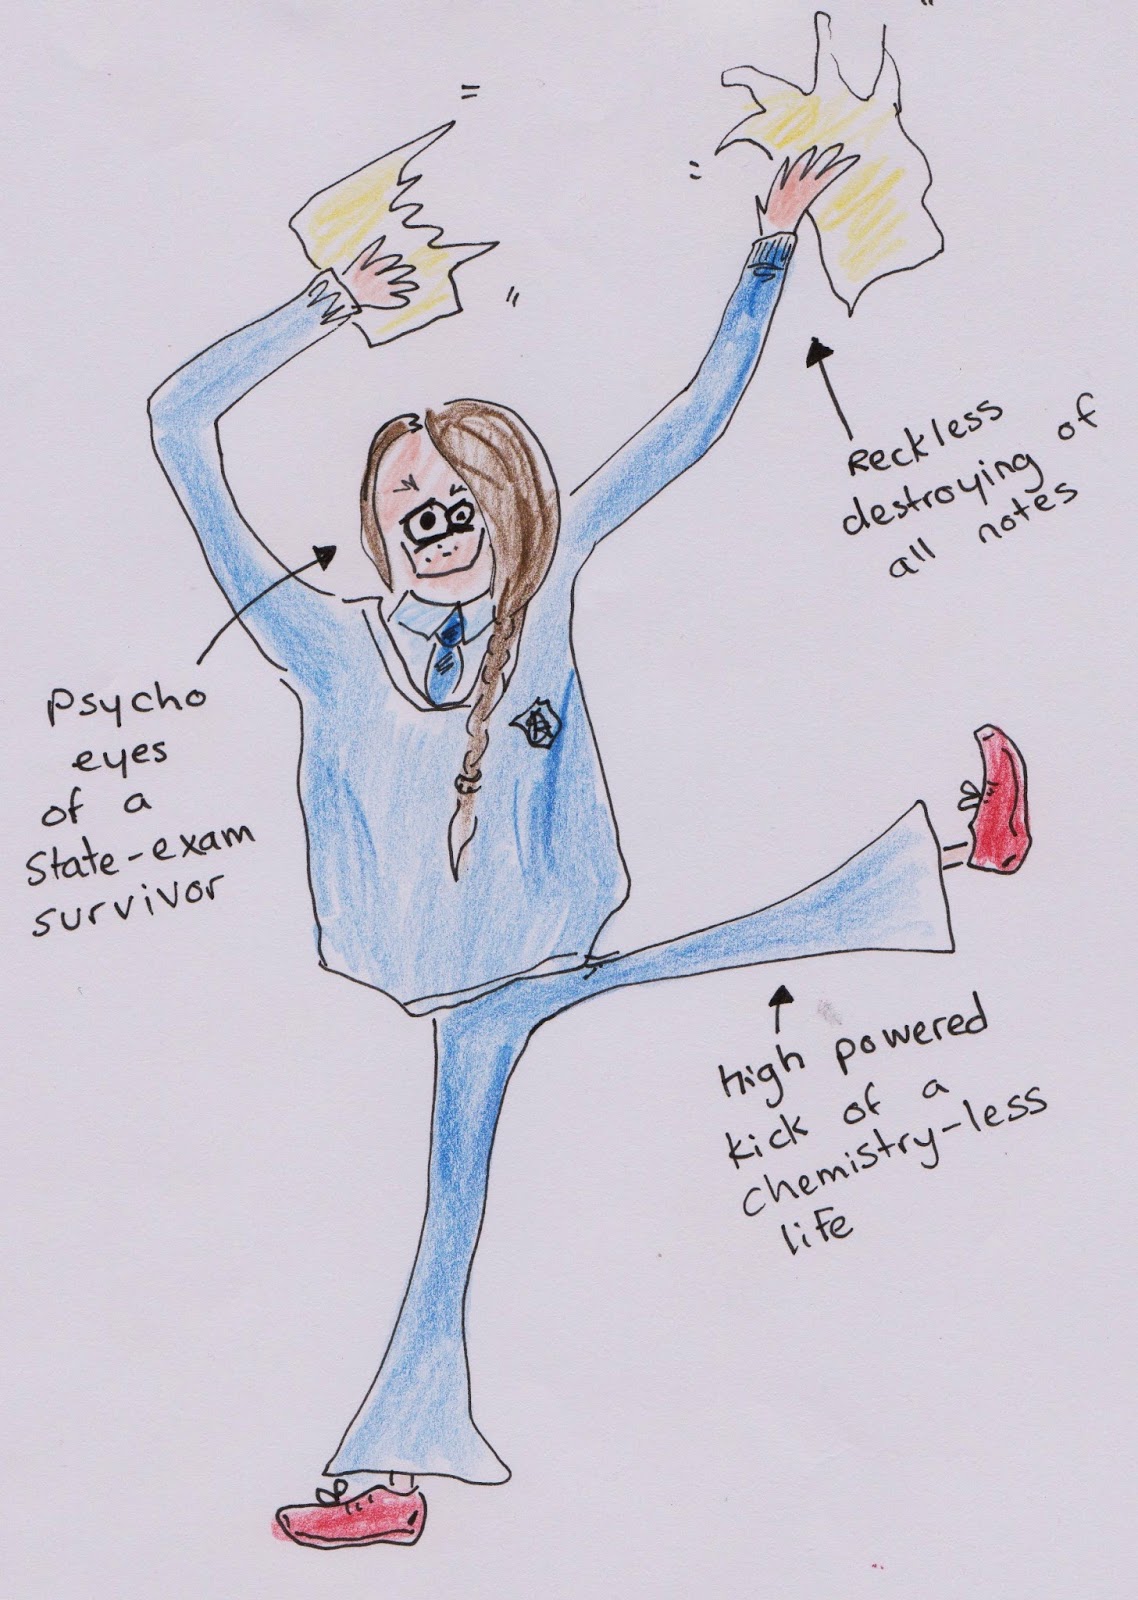 Reckless
destroying of
all notes
Psycho
eyes
of a
State-exam
survivor
high powered
kick of a
chemistry-less
life